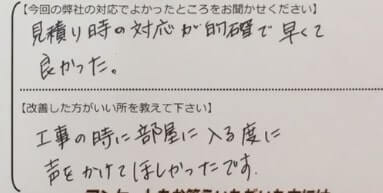 【今回の弊社の対応でよかったところをお聞かせください】
見積り時の対応が的確で早くて
良かった。
【改善した方がいい所を教えて下さい】
工事の時に部屋に入る度に
声をかけてほしかったです.